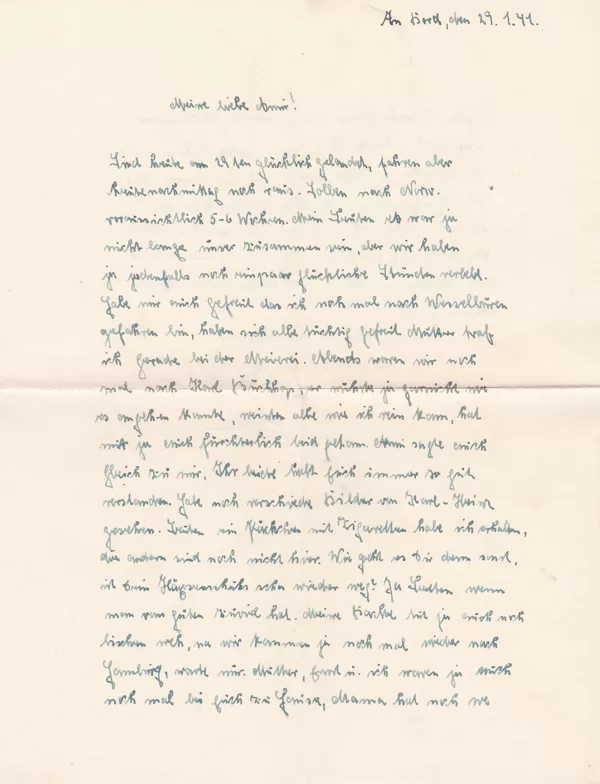 An Bord, den 29.1.41.
Meine liebe Anni!
Sind heute am 29ten glücklich gelandet, fahren aber
heute nachmittag noch raus. Sollen nach Norw.
voraussichtlich 5-6 Wochen. Mein es war ja
nicht lange unser zusammen sein, aber wir haben
ja jedenfalls noch einpaar glückliche Stunden verlebt.
Habe mir auch gefreut das ich noch mal nach Wesselburen
gefahren bin, haben sich alle tüchtig gefreut Mutter traf
ich gerade bei der Meierei. Abends waren wir noch
mal nach Karl er wußte ja garnicht wie
es angehen konnte, weinten alle wie ich rein kam, hat
mir ja auch fürchterlich leid getan. Anni sagte auch
gleich zu mir, Ihr beide habt Euch immer so gut
verstanden. Habe noch verschiede Bilder von Karl-Heinz
gesehen. ein Päckchen mit Zigaretten habe ich erhalten,
die andern sind noch nicht hier. Wie geht es Dir denn sonst,
ist Dein schon wieder weg? Ja wenn
man vom guten zuviel hat. Meine tut ja auch noch
bischen weh, na wir kommen ja noch mal wieder nach
Hamburg, warte nur. Mutter, u. ich waren ja auch
noch mal bei Euch zu Hause, Mama hat noch